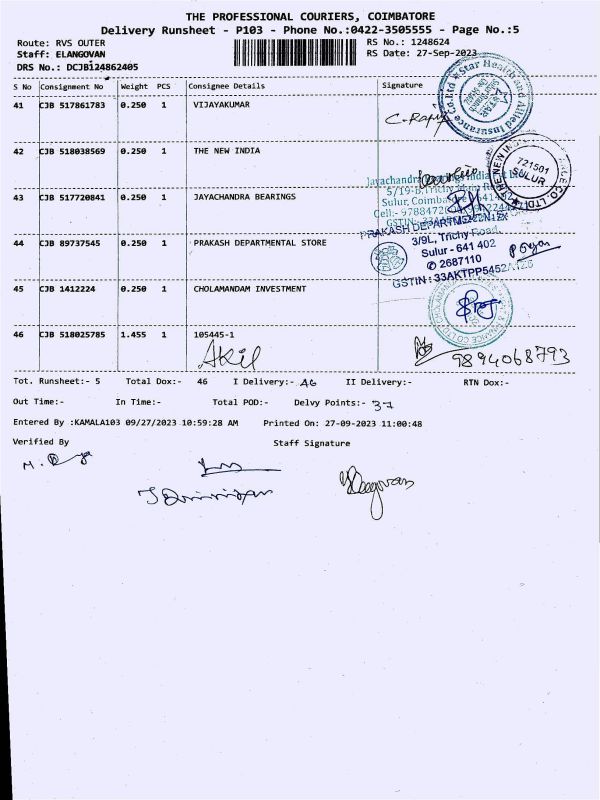 THE PROFESSIONAL COURIERS, COIMBATORE
Delivery Runsheet - P103 - Phone No.:0422-3505555 - Page No.:5
Route: RVS OUTER RS No.: 1248624
Staff: ELANGOVAN RS Date: 27-Sep-2023
DRS No.: DCJB1248624O5
S No Consignment No Weight PCS Consignee Details Signature
41 CJB 517861783 0.250 1 VIJAYAKUMAR
Star Health and Allied Insurance Co.Ltd
42 CJB 518038569 0.250 1 THE NEW INDIA
721501
SULUR
43 CJB 517720841 0.250 1 JAYACHANDRA BEARINGS
5/19-B, Trichy Main
Sulur, Coimbatore
44 CJB 89737545 0.250 1 PRAKASH DEPARTMENTAL STORE
3/9L, Trichy Road,
Sulur - 641 402
2687110
GSTIN : 33AKTPP5452
45 CJB 1412224 0.250 1 CHOLAMANDAM INVESTMENT
46 CJB 518025785 1.455 1 105445-1
Akil 9894068793
Tot. Runsheet:- 5 Total Dox:- 46 I Delivery:- 46 II Delivery:- RTN Dox:-
Out Time:- In Time:- Total POD:- Delvy Points:- 37
Entered By :KAMALA103 09/27/2023 10:59:28 AM Printed On: 27-09-2023 11:00:48
Verified By Staff Signature